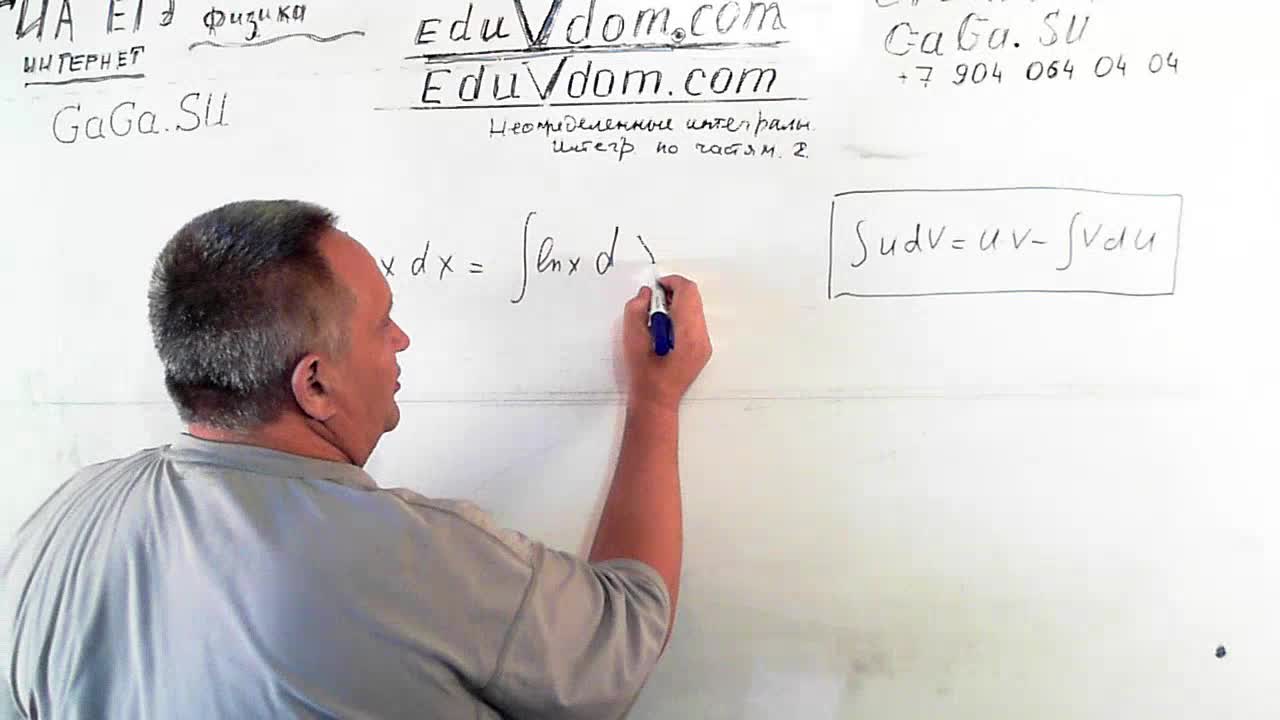 физика
ИНТЕРНЕТ
GaGa.SU
EduVdom.com
EduVdom.com
Неопределенные интегралы.
Интегр. по частям. 2.
GaGa.SU
+7 904 064 04 04
x dx = ∫ ln x d
∫ u dV = u V - ∫ V d u